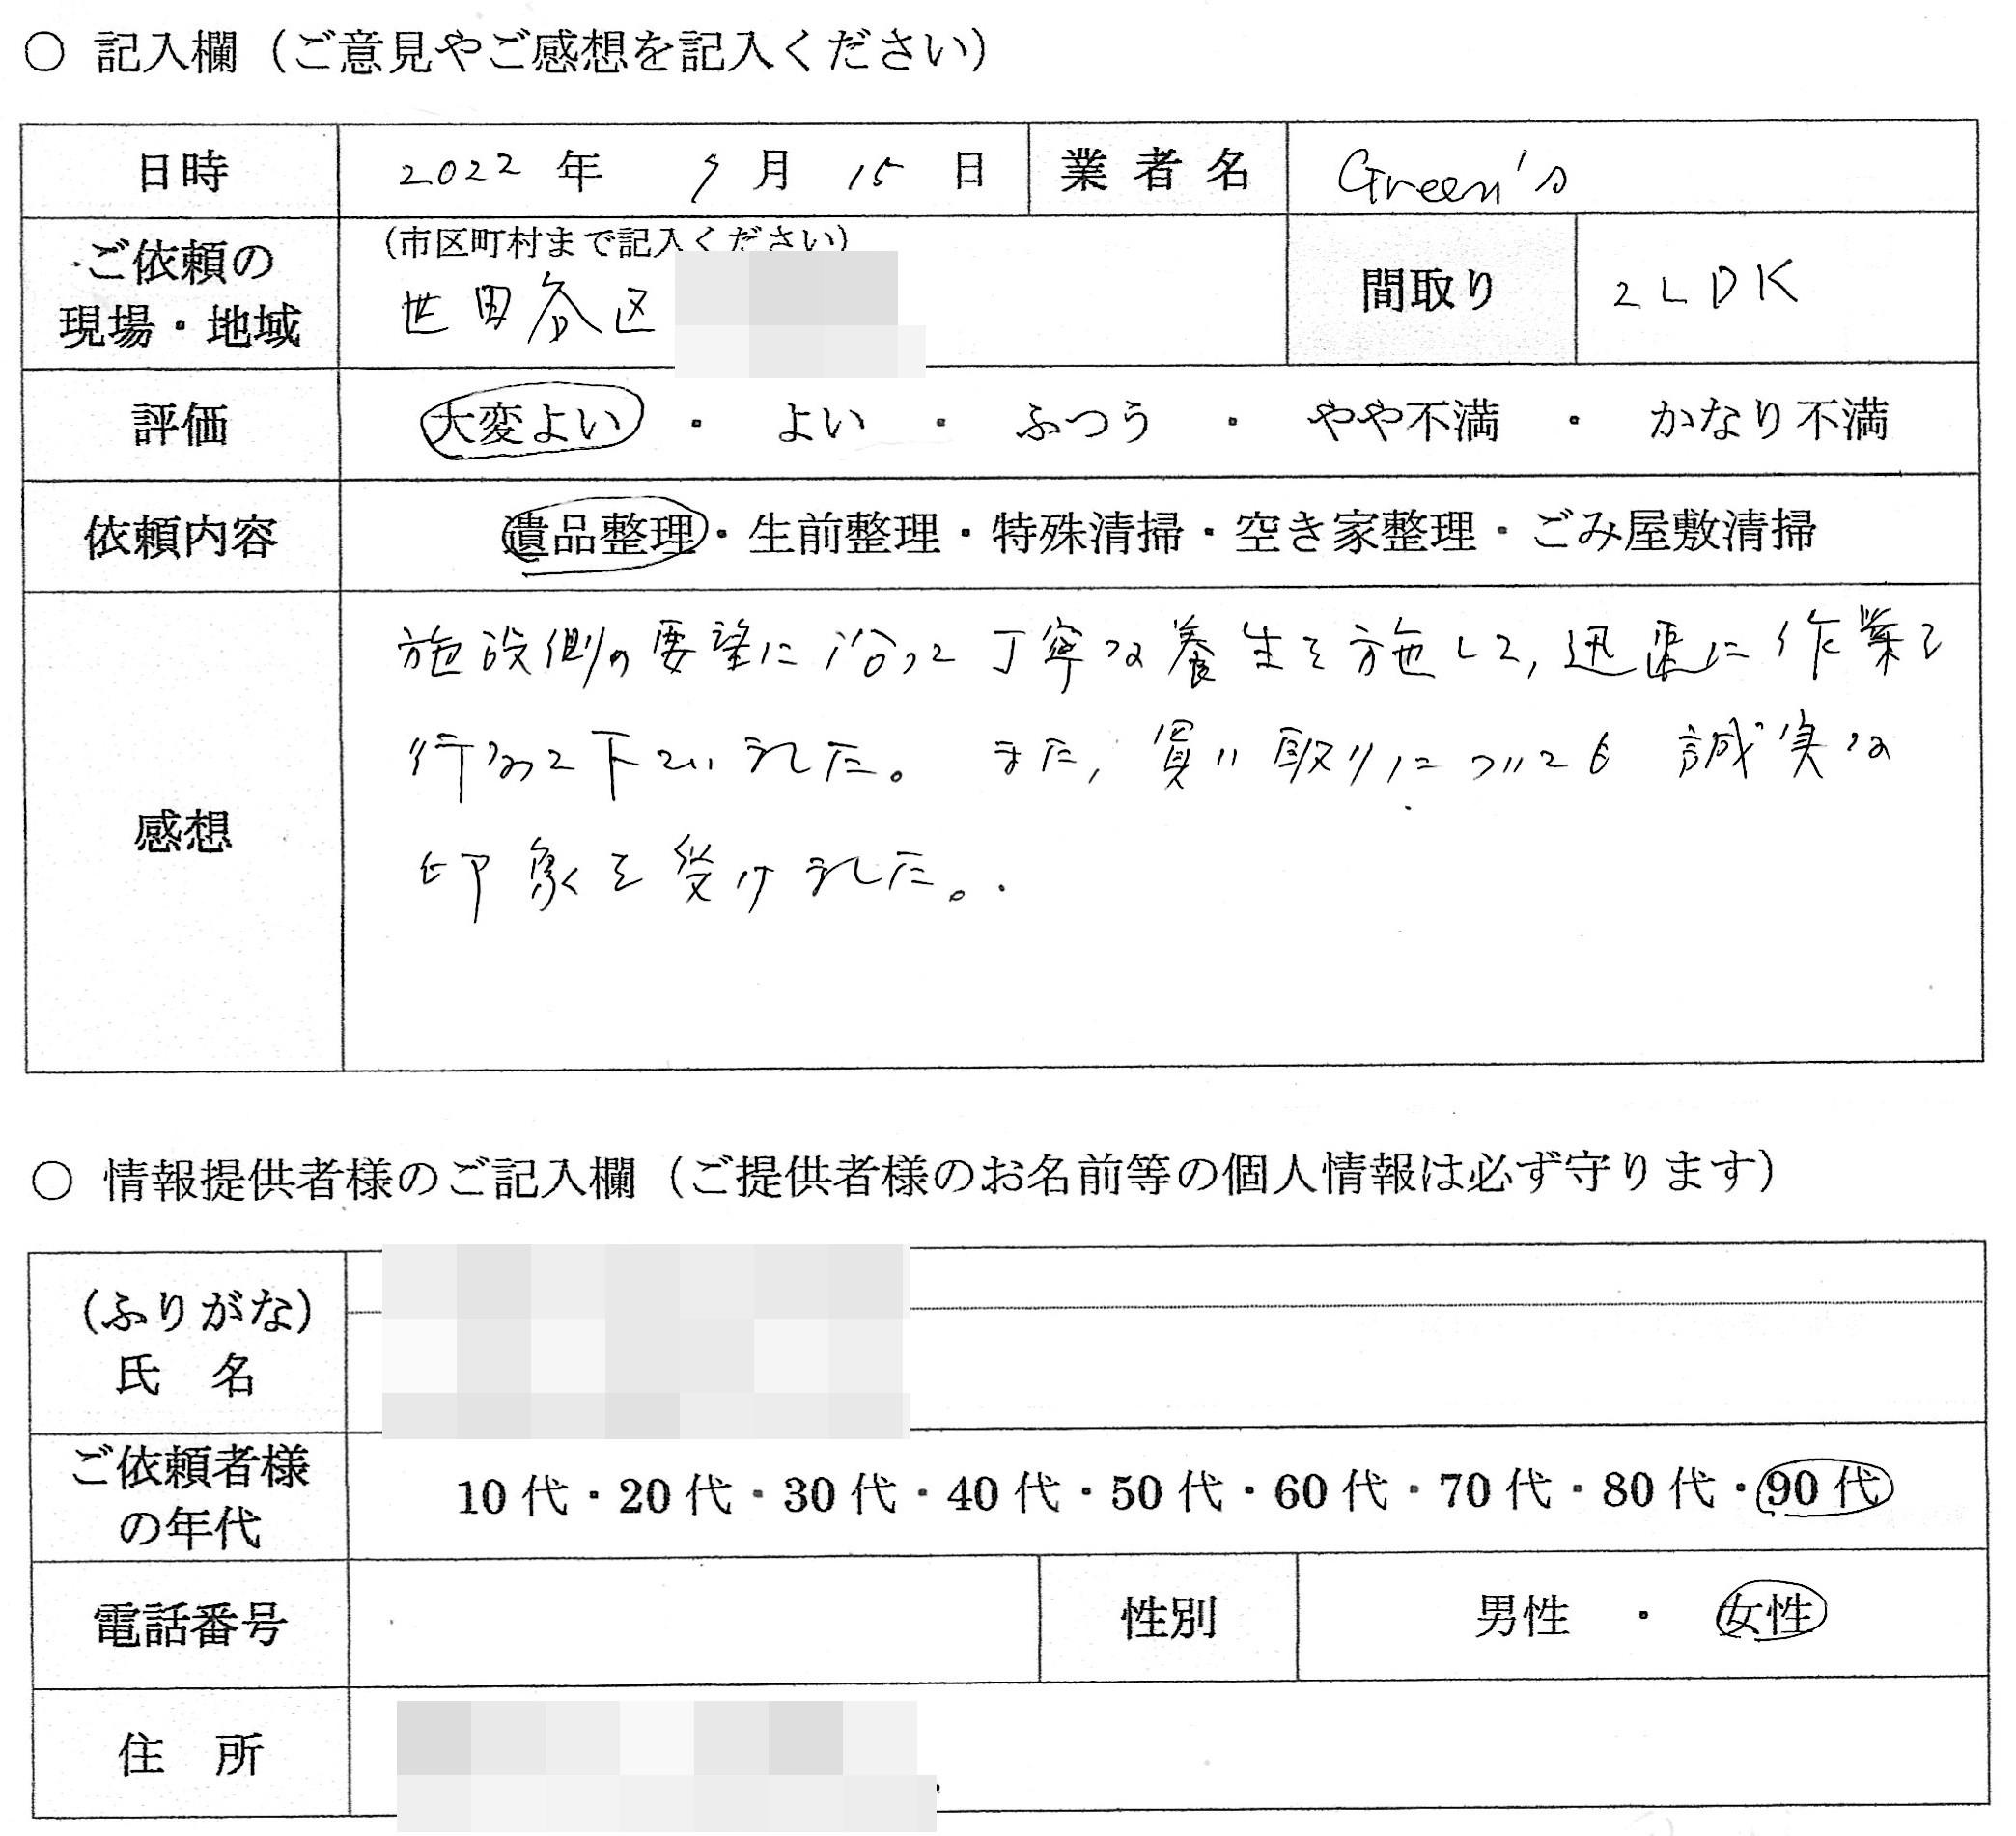 ○ 記入欄（ご意見やご感想を記入ください）
日時 2022 年 9 月 15 日 業者名 Green's
ご依頼の
現場・地域
（市区町村まで記入ください）
世田谷区
間取り 2LDK
評価 大変よい ・ よい ・ ふつう ・ やや不満 ・ かなり不満
依頼内容 遺品整理・生前整理・特殊清掃・空き家整理・ごみ屋敷清掃
感想
施設側の要望に沿って丁寧な養生を施して、迅速に作業を
行なって下さいました。 また、買い取りについても誠実な
印象を受けました。
○ 情報提供者様のご記入欄（ご提供者様のお名前等の個人情報は必ず守ります）
（ふりがな）
氏 名
ご依頼者様
の年代
10代・20代・30代・40代・50代・60代・70代・80代・90代
電話番号 性別 男性 ・ 女性
住 所